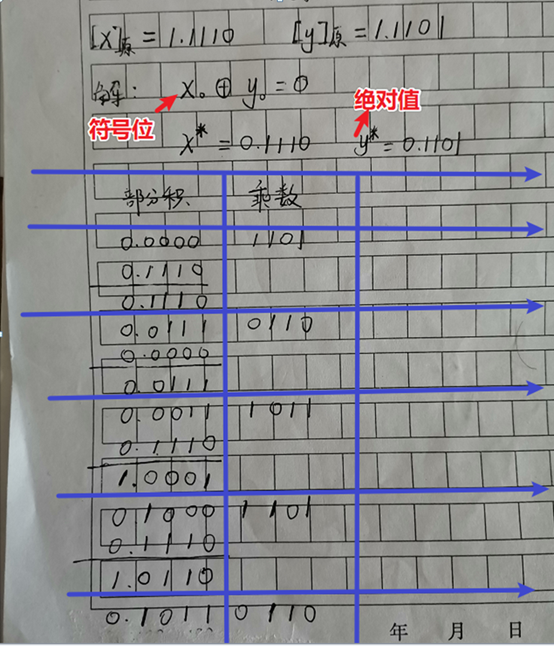 [x]原 = 1.1110 [y]原 = 1.1101
解: x₀ ⊕ y₀ = 0
符号位 绝对值
x* = 0.1110 y* = 0.1101
部分积 乘数
0.0000 1101
0.1110
0.1110
0.0111 0110
0.0000
0.0111
0.0011 1011
0.1110
1.0001
0.1000 1101
0.1110
1.0110
0.1011 0110
年 月 日